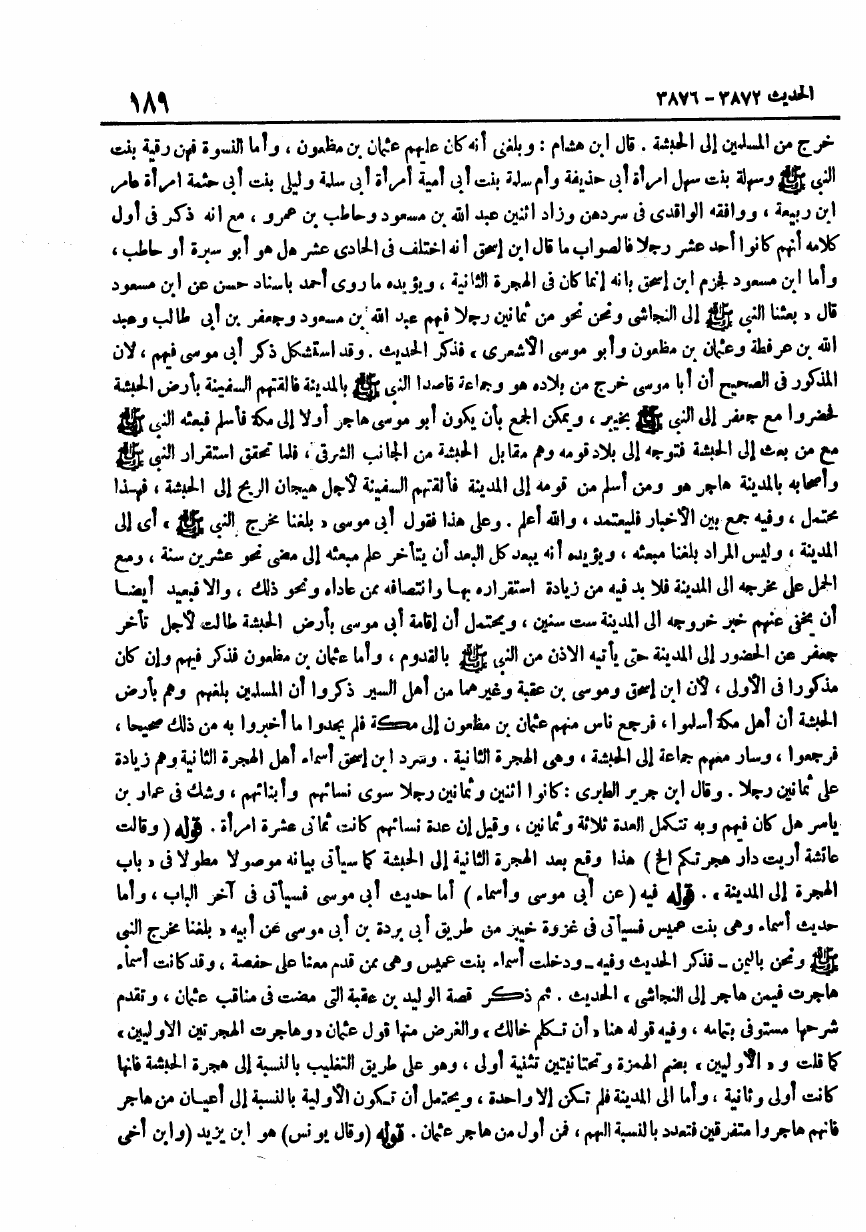 الحديث ٣٨٧٢ - ٣٨٧٦
١٨٩
خرج من المسلمين إلى الحبشة . قال ابن هشام : وبلغنى أنه كان عليهم عثمان بن مظعون ، وأما النسوة فهن رقية بنت
النبي ﷺ وسهلة بنت سهل امرأة أبى حذيفة وأم سلمة بنت أبى أمية أمرأة أبى سلمة وليلى بنت أبى حثمة امرأة عامر
ابن ربيعة ، ووافقه الواقدى فى سردهن وزاد اثنين عبد الله بن مسعود وحاطب بن عمرو ، مع انه ذكر فى أول
كلامه أنهم كانوا أحد عشر رجلا فالصواب ما قال ابن إسحق أنه اختلف فى الحادى عشر هل هو أبو سبرة أو حاطب ،
وأما ابن مسعود لجزم ابن إسحق بانه إنما كان فى الهجرة الثانية ، ويؤيده ما روى أحمد باسناد حسن عن ابن مسعود
قال « بعثنا النبي ﷺ إلى النجاشى ونحن نحو من ثمانين رجلا فهم عبد الله بن مسعود وجعفر بن أبى طالب وعبد
الله بن عرفطة وعثمان بن مظعون وأبو موسى الأشعرى » فذكر الحديث . وقد استشكل ذكر أبى موسى فيهم ، لان
المذكور فى الصحيح أن أبا موسى خرج من بلاده هو وجماعة قاصدا النبي ﷺ بالمدينة فالقتهم السفينة بأرض الحبشة
فحضروا مع جعفر إلى النبي ﷺ بخيبر ، ويمكن الجمع بأن يكون أبو موسى هاجر أولا إلى مكة فأسلم فبعثه النبي ﷺ
مع من بعث إلى الحبشة فتوجه إلى بلاد قومه وهم مقابل الحبشة من الجانب الشرقى ، فلما تحقق استقرار النبي ﷺ
وأصحابه بالمدينة هاجر هو ومن أسلم من قومه إلى المدينة فألقتهم السفينة لأجل هيجان الريح إلى الحبشة ، فهذا
محتمل ، وفيه جمع بين الأخبار فليعتمد ، والله أعلم . وعلى هذا فقول أبى موسى « بلغنا مخرج النبي ﷺ » أى إلى
المدينة ، وليس المراد بلغنا مبعثه ، ويؤيده أنه يبعد كل البعد أن يتأخر علم مبعثه إلى مضى نحو عشرين سنة ، ومع
الحمل على مخرجه الى المدينة فلا بد فيه من زيادة استقراره بها وانتصافه ممن عاداه ونحو ذلك ، والا فبعيد أيضا
أن يخفى عنهم خبر خروجه الى المدينة ست سنين ، ويحتمل أن إقامة أبى موسى بأرض الحبشة طالت لأجل تأخر
جعفر عن الحضور إلى المدينة حتى يأتيه الاذن من النبي ﷺ بالقدوم ، وأما عثمان بن مظعون فذكر فيهم وإن كان
مذكورا فى الأولى ، لأن ابن إسحق وموسى بن عقبة وغيرهما من أهل السير ذكروا أن المسلمين بلغهم وهم بأرض
الحبشة أن أهل مكة أسلموا ، فرجع ناس منهم عثمان بن مظعون إلى مكة فلم يجدوا ما أخبروا به من ذلك صحيحا ،
فرجعوا ، وسار معهم جماعة إلى الحبشة ، وهى الهجرة الثانية . وسرد ابن إسحق أسماء أهل الهجرة الثانية وهم زيادة
على ثمانين رجلا . وقال ابن جرير الطبرى : كانوا اثنين وثمانين رجلا سوى نسائهم وأبنائهم ، وشك فى عمار بن
ياسر هل كان فيهم وبه تتكمل العدة ثلاثة وثمانين ، وقيل إن عدة نسائهم كانت ثمانى عشرة امرأة . قوله ( وقالت
عائشة أريت دار هجرتكم الخ ) هذا وقع بعد الهجرة الثانية إلى الحبشة كما سيأتى بيانه موصولا مطولا فى « باب
الهجرة إلى المدينة » . قوله فيه ( عن أبى موسى وأسماء ) أما حديث أبى موسى فسيأتى فى آخر الباب ، وأما
حديث أسماء وهى بنت عميس فسيأتى فى غزوة خيبر من طريق أبى بردة بن أبى موسى عن أبيه « بلغنا مخرج النبي
ﷺ ونحن باليمن - فذكر الحديث وفيه - ودخلت أسماء بنت عميس وهى ممن قدم معنا على حفصة ، وقد كانت أسماء
هاجرت فيمن هاجر إلى النجاشى » الحديث . ثم ذكر قصة الوليد بن عقبة التى مضت فى مناقب عثمان ، وتقدم
شرحها مستوفى بتمامه ، وفيه قوله هنا « أن تكلم خالك » والغرض منها قول عثمان « وهاجرت الهجرتين الاوليين »
كما قلت و « الأوليين » بضم الهمزة وتحتانيتين تثنية أولى ، وهو على طريق التغليب بالنسبة إلى هجرة الحبشة فانها
كانت أولى وثانية ، وأما الى المدينة فلم تكن إلا واحدة ، ويحتمل أن تكون الأولية بالنسبة إلى أعيان من هاجر
فانهم هاجروا متفرقين فتعدد بالنسبة اليهم ، فمن أول من هاجر عثمان . قوله (وقال يونس) هو ابن يزيد (وابن أخى